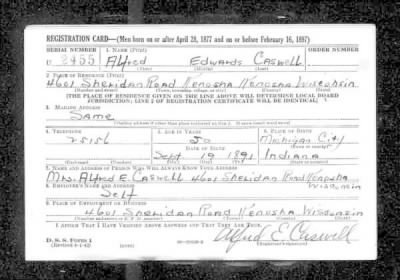 REGISTRATION CARD—(Men born on or after April 28, 1877 and on or before February 16, 1897)
SERIAL NUMBER 1. NAME (Print) ORDER NUMBER
U 2455 Alfred Edwards Caswell
(First) (Middle) (Last)
2. PLACE OF RESIDENCE (Print)
4601 Sheridan Road Kenosha Kenosha Wisconsin
(Number and street) (Town, township, village, or city) (County) (State)
[THE PLACE OF RESIDENCE GIVEN ON THE LINE ABOVE WILL DETERMINE LOCAL BOARD
JURISDICTION; LINE 2 OF REGISTRATION CERTIFICATE WILL BE IDENTICAL]
3. MAILING ADDRESS
Same
[Mailing address if other than place indicated on line 2. If same insert word same]
4. TELEPHONE 5. AGE IN YEARS 6. PLACE OF BIRTH
25156 50 Michigan City
DATE OF BIRTH
Sept 19 1891 Indiana
(Exchange) (Number) (Mo.) (Day) (Yr.) (State or country)
7. NAME AND ADDRESS OF PERSON WHO WILL ALWAYS KNOW YOUR ADDRESS
Mrs. Alfred E Caswell 4601 Sheridan Road Kenosha
Wisconsin
8. EMPLOYER'S NAME AND ADDRESS
Self
9. PLACE OF EMPLOYMENT OR BUSINESS
4601 Sheridan Road Kenosha Wisconsin
(Number and street or R. F. D. number) (Town) (County) (State)
I AFFIRM THAT I HAVE VERIFIED ABOVE ANSWERS AND THAT THEY ARE TRUE.
D. S. S. Form 1
(Revised 4-1-42)
Alfred E. Caswell